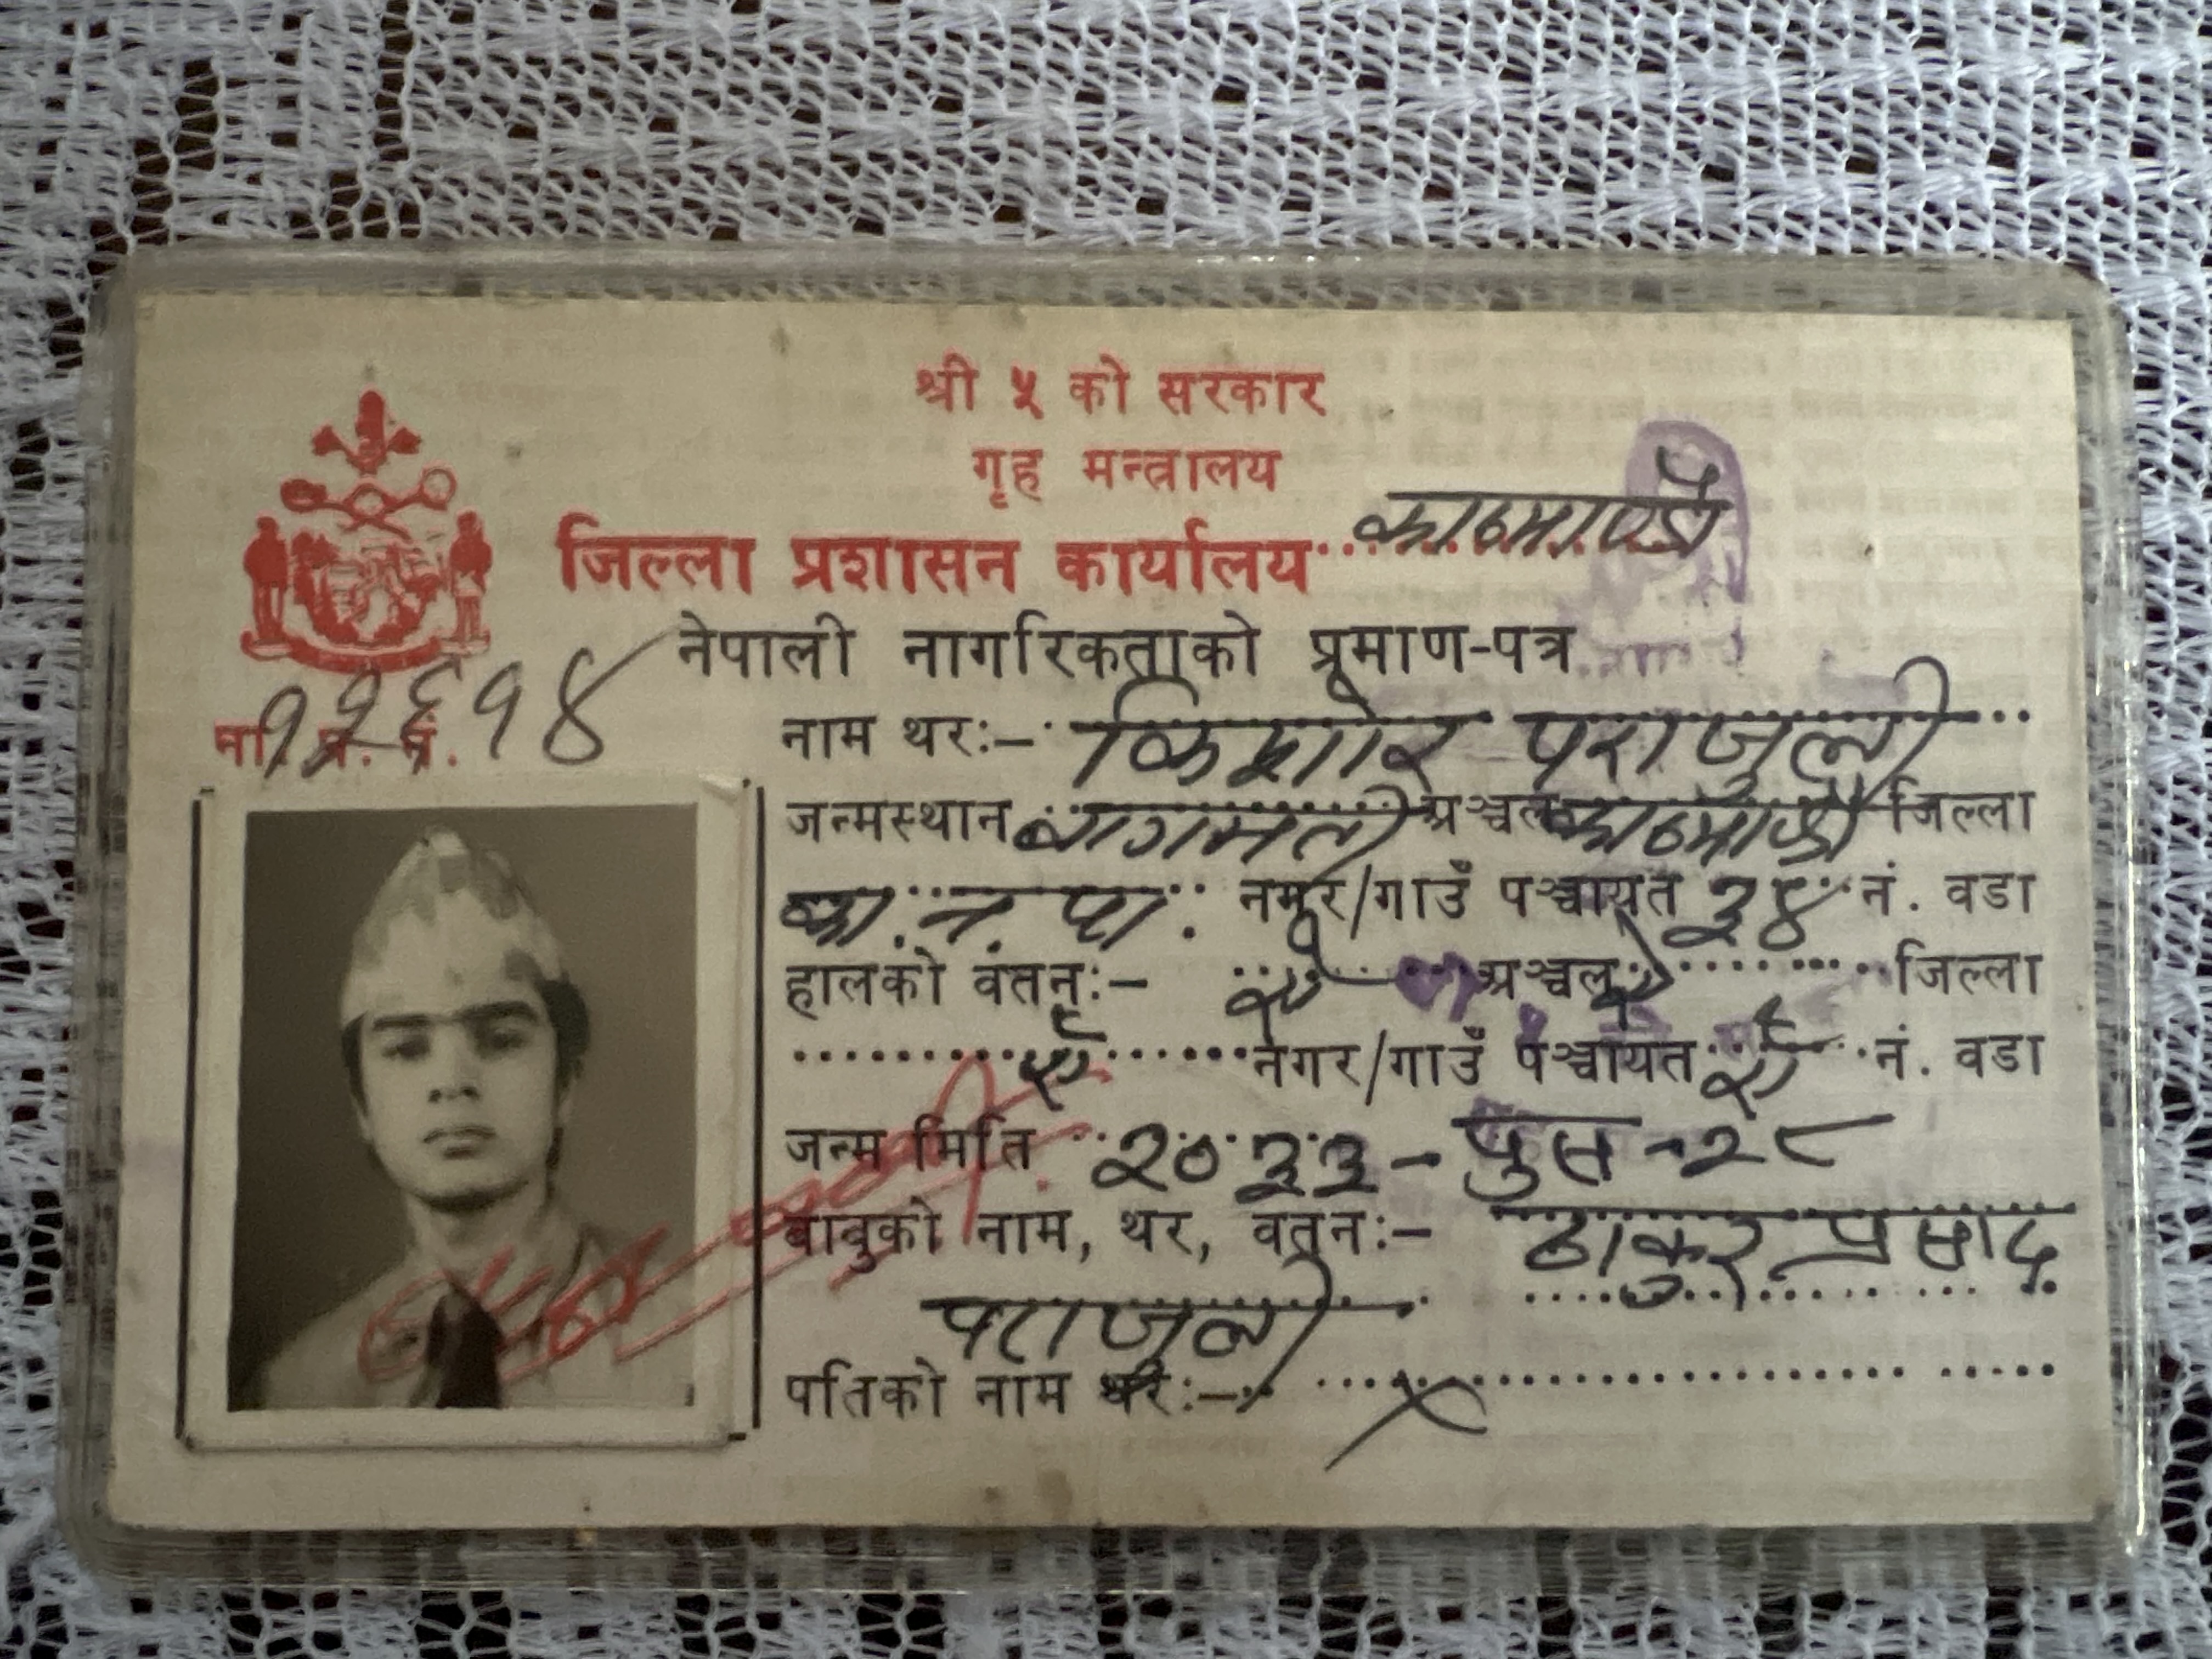 श्री ५ को सरकार
गृह मन्त्रालय
जिल्ला प्रशासन कार्यालय काठमाण्डौ
नेपाली नागरिकताको प्रमाण-पत्र
ना. प्र. नं. ११६१४
नाम थरः- किशोर पराजुली
जन्मस्थान बागमती अञ्चल काठमाण्डौ जिल्ला
का. न. पा. नगर/गाउँ पञ्चायत ३४ नं. वडा
हालको वतनः- ऐ अञ्चल ऐ जिल्ला
ऐ नगर/गाउँ पञ्चायत ऐ नं. वडा
जन्म मिति २०३३ - पुस - २८
बाबुको नाम, थर, वतनः- ठाकुर प्रसाद
पराजुली
पतिको नाम थरः- ×